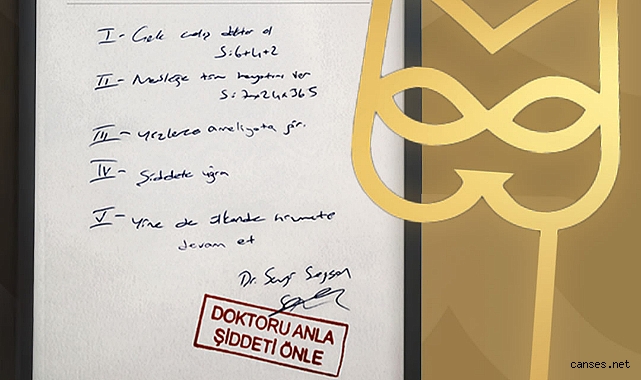 I - Çok çalış doktor ol
S: 6+4+2
II - Mesleğe tüm hayatını ver
S: 7x24x365
III - Yüzlerce ameliyata gir.
IV - Şiddete uğra
V - Yine de ülkende hizmete
devam et
Dr. Sevgi
DOKTORU ANLA
ŞİDDETİ ÖNLE
canses.net